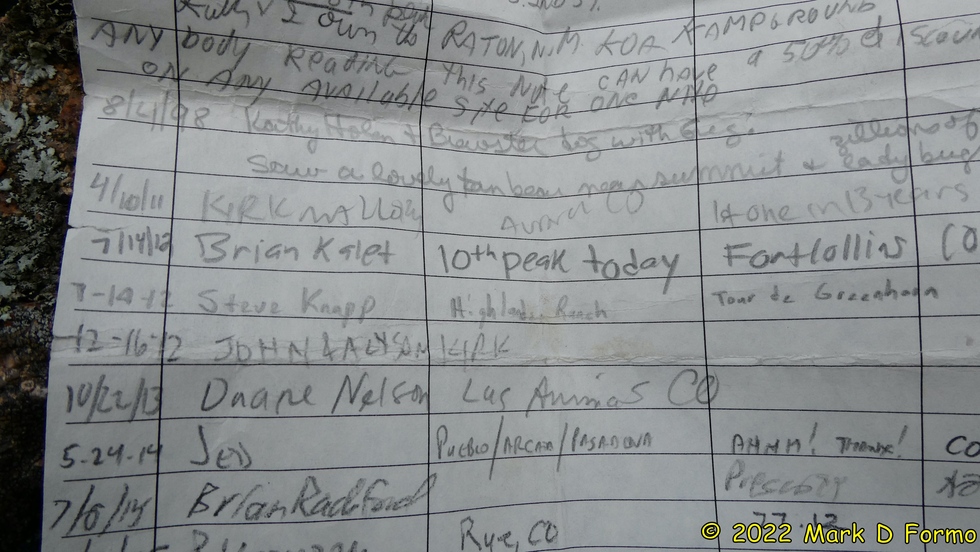 I own the RATON, N.M. KOA KAMPGROUND
ANY body READING this Note CAN HAVE a 50% discoun
ON ANY AVAILABLE Site FOR ONE
8/4/98 Kathy & Brewster dog with Greg. zillions of
Saw a lovely tan bear near summit & lady bug
4/10/11 KIRK MALLORY Aurora CO 1st one in 13 years
7/14/12 Brian Kalet 10th peak today Fort Collins CO
7-14-12 Steve Knapp Highlands Ranch Tour de Greenhorn
-12-16-12 JOHN & ALYSON KIRK
10/22/13 Duane Nelson Las Animas CO
5-24-14 JED PUEBLO/ARCATA/PASADENA AHHH! THANX! CO
Brian Radford Prescott
Rye, CO 77.12
© 2022 Mark D Forme